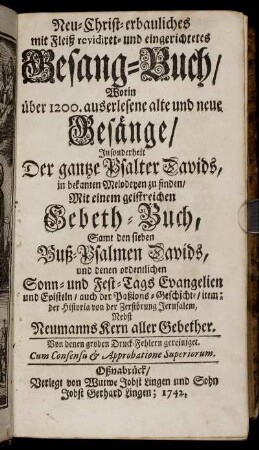 Neu-Christ-erbauliches
mit Fleiß revidiret- und eingerichtetes
Gesang-Buch/
Worin
über 1200. auserlesene alte und neue
Gesänge/
Insonderheit
Der gantze Psalter Davids,
in bekanten Melodeyen zu finden/
Mit einem geistreichen
Gebeth-Buch,
Samt den sieben
Buß-Psalmen Davids,
und denen ordentlichen
Sonn- und Fest-Tags Evangelien
und Episteln/ auch der Paßions-Geschicht/ item:
der Historia von der Zerstörung Jerusalem,
Nebst
Neumanns Kern aller Gebether.
Von denen groben Druck-Fehlern gereiniget.
Cum Consensu & Approbatione Superiorum.
Oßnabrück/
Verlegt von Witwe Jobst Lingen und Sohn
Jobst Gerhard Lingen; 1742.